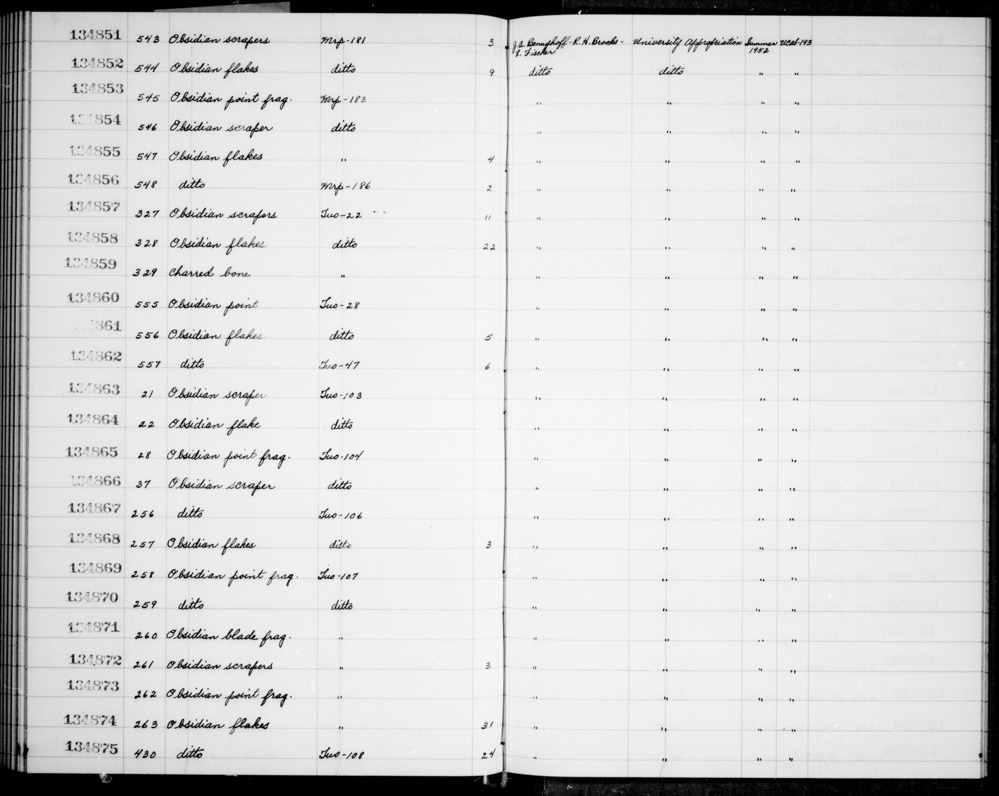 134851 543 Obsidian scrapers Mrp-181 3 J.A. Bennyhoff-R.H. Brooks- University Appropriation Summer UCAS-193
F. Fischer 1952
134852 544 Obsidian flakes ditto 9 ditto ditto " "
134853 545 Obsidian point frag. Mrp-183 " " " "
134854 546 Obsidian scraper ditto " " " "
134855 547 Obsidian flakes " 4 " " " "
134856 548 ditto Mrp-186 2 " " " "
134857 327 Obsidian scrapers Tuo-22 11 " " " "
134858 328 Obsidian flakes ditto 22 " " " "
134859 329 Charred bone " " " " "
134860 555 Obsidian point Tuo-28 " " " "
861 556 Obsidian flakes ditto 5 " " " "
134862 557 ditto Tuo-47 6 " " " "
134863 21 Obsidian scraper Tuo-103 " " " "
134864 22 Obsidian flake ditto " " " "
134865 28 Obsidian point frag. Tuo-104 " " " "
134866 37 Obsidian scraper ditto " " " "
134867 256 ditto Tuo-106 " " " "
134868 257 Obsidian flakes ditto 3 " " " "
134869 258 Obsidian point frag. Tuo-107 " " " "
134870 259 ditto ditto " " " "
134871 260 Obsidian blade frag. " " " " "
134872 261 Obsidian scrapers " 3 " " " "
134873 262 Obsidian point frag. " " " " "
134874 263 Obsidian flakes " 31 " " " "
134875 430 ditto Tuo-108 24 " " " "